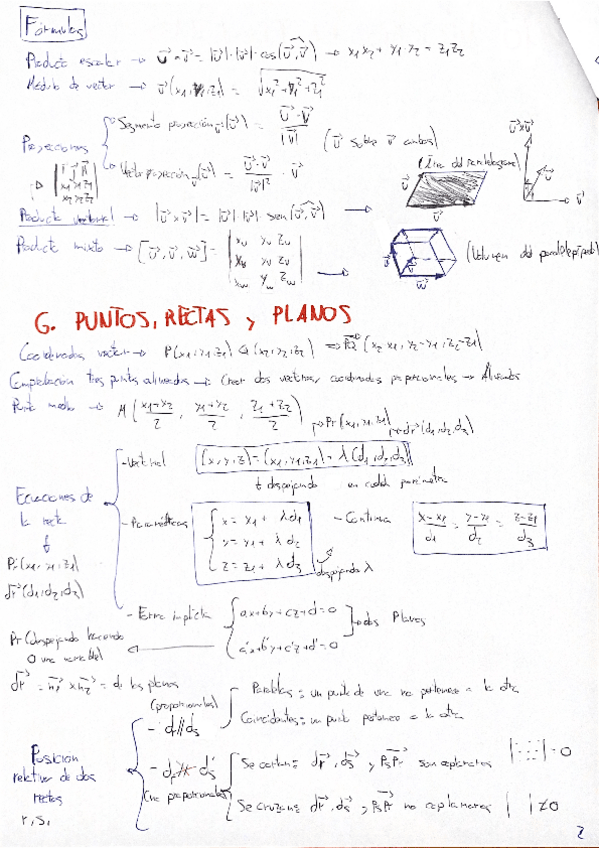 Fórmulas
Producto escalar → u⃗·v⃗ = |u⃗|·|v⃗|·cos(u⃗,v⃗) → x₁x₂ + y₁·y₂ + z₁z₂
Módulo de vector → v⃗(x₁,y₁,z₁) = √(x₁²+y₁²+z₁²)
Proyecciones
Segmento proyección v⃗(u⃗) = u⃗·v⃗ / |v⃗| (u⃗ sobre v⃗ ambos)
Vector proyección v⃗(u⃗) = u⃗·v⃗ / |v⃗|² · v⃗
(Área del paralelogramo)
Producto vectorial → |u⃗×v⃗| = |u⃗|·|v⃗|·sen(u⃗,v⃗) →
Producto mixto → [u⃗,v⃗,w⃗] = | xᵤ yᵤ zᵤ | xᵥ yᵥ zᵥ | x_w y_w z_w | → (Volumen del paralelepípedo)
6. PUNTOS, RECTAS y PLANOS
Coordenadas vector → P(x₁,y₁,z₁) Q(x₂,y₂,z₂) ⇒ PQ⃗ (x₂-x₁, y₂-y₁, z₂-z₁)
Comprobación tres puntos alineados → Crear dos vectores, coordenadas proporcionales → Alineados
Punto medio → M( x₁+x₂ / 2 , y₁+y₂ / 2 , z₁+z₂ / 2 )
Pr(x₁,y₁,z₁)
dr⃗(d₁,d₂,d₃)
Ecuaciones de la recta
Pr(x₁,y₁,z₁)
dr⃗(d₁,d₂,d₃)
- Vectorial (x,y,z) = (x₁,y₁,z₁) + λ(d₁,d₂,d₃)
despejando en cada parámetro
- Paramétricas { x = x₁ + λd₁
y = y₁ + λd₂
z = z₁ + λd₃
despejando λ
- Continua x-x₁ / d₁ = y-y₁ / d₂ = z-z₁ / d₃
- Forma implícita { ax+by+cz+d=0
a'x+b'y+c'z+d'=0
dos Planos
Pr (despejando haciendo 0 una variable)
dr⃗ = n₁⃗ × n₂⃗ = de los planos
Posición relativa de dos rectas r, s,
(proporcionales)
- dr // ds
Paralelas: un punto de una no pertenece a la otra
Coincidentes: un punto pertenece a la otra
(no proporcionales)
Se cortan: dr⃗, ds⃗ y PsPr⃗ son coplanarios | | = 0
Se cruzan: dr⃗, ds⃗ y PsPr⃗ no coplanarios | | ≠ 0
2